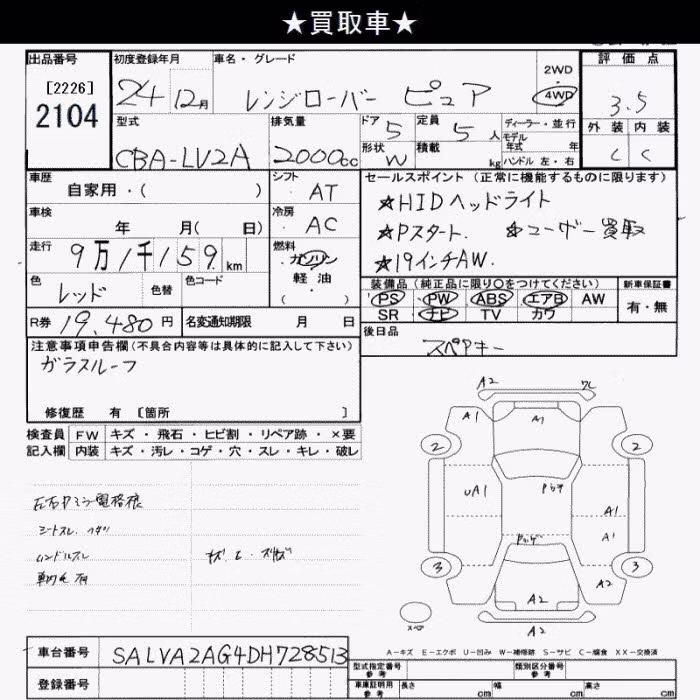 ★買取車★
出品番号 初度登録年月 車名・グレード 2WD 評価点
[2226] 24 12月 レンジローバー ピュア 4WD 3.5
2104 型式 排気量 ドア 定員 ディーラー・並行 外装 内装
CBA-LV2A 2000cc 5 5人 モデル年式 年 C C
形状 W 積載 kg ハンドル 左・右
車歴 自家用・( ) シフト AT セールスポイント (正常に機能するものに限ります)
車検 年 月( 日) 冷房 AC ★HIDヘッドライト
★Pスタート. ★ユーザー買取
走行 9万1千159km 燃料 ガソリン 軽油・( ) ★19インチAW.
色 レッド 色替 色コード 装備品(純正品に限り○をつけてください) 新車保証書
PS PW ABS エアB AW 有・無
R券 19,480円 名変通知期限 月 日 SR ナビ TV カワ
注意事項申告欄(不具合内容等は具体的に記入して下さい) 後日品
ガラスルーフ スペアキー
修復歴 有 [箇所 ]
検査員 FW キズ・飛石・ヒビ割・リペア跡・×要
記入欄 内装 キズ・汚レ・コゲ・穴・スレ・キレ・破レ
A2
A1 A1
2 2
UA1 A1
A1
シートスレ.
ハンドルスレ
3 3
A2
A2
スペア A2
A-キズ E-エクボ U-凹み W-補修跡 S-サビ C-腐食 XX-交換済
車台番号 SALVA2AG4DH728513
型式指定番号 参考 類別区分番号 参考
登録番号 車庫証明用 参考 長さ cm 幅 cm 高さ cm